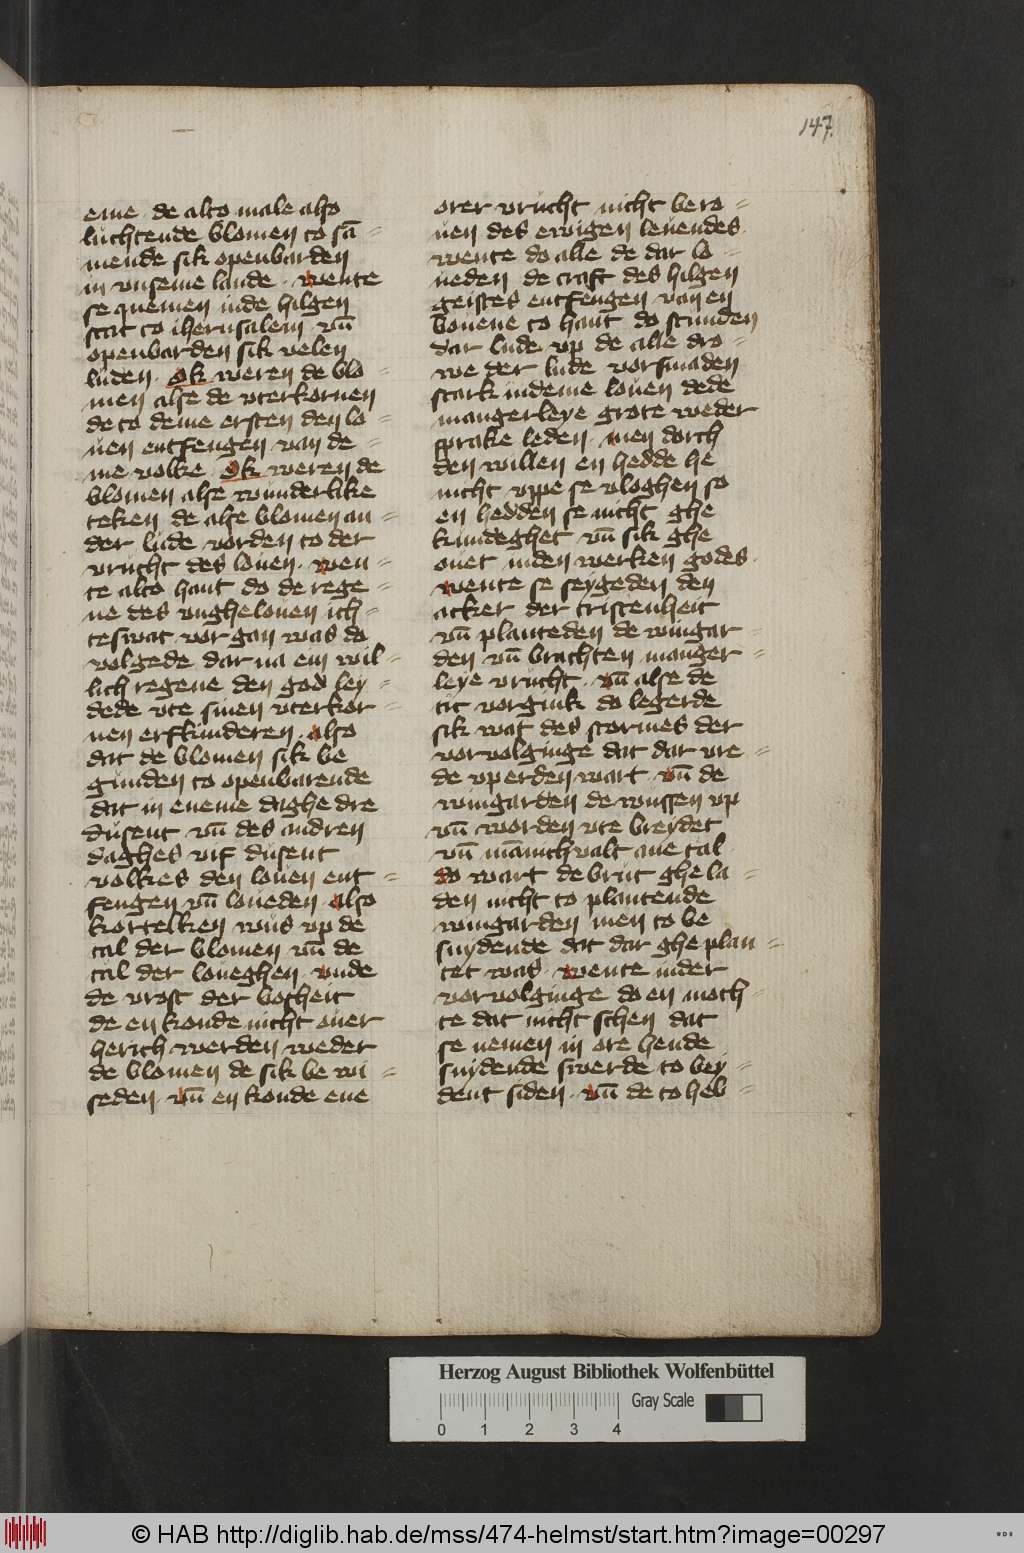 147.
eme de alto male also
luchtende blomen to sā=
mende sik openbarden
in vnseme lande. wente
se quemen inde hilgen
stat to iherusalem vn̄
openbarden sik velen
luden. Ok weren de blo=
men alse de vterkornen
de to deme ersten den lo=
uen entfengen van de=
me volke. Ok weren de
blomen alse wunderlike
teken de alse blomen an=
der lude vorden to der
vrucht des louen. wen=
te alto hant do de rege=
ne des vnghelouen ich=
teswat vor gan was do
volgede dar na ein wil=
lich regene den god ley=
dede vte sinen vterkor=
nen erfkinderen. also
dat de blomen sik be
gunden to openbarende
dat in eneme daghe dre
dusent vn̄ des andren
daghes vif dusent
volkes den louen ent=
fengen vn̄ loueden. also
kortelken wus vp de
tal der blomen vn̄ de
tal der loueghen. vnde
de vrost der bosheit
de en konde nicht ouer
herich werden weder
de blomen de sik be wi=
seden. vn̄ en konde ene
orer vrucht nicht bero=
uen des ewigen leuendes.
wente do alle de dar lo=
ueden de craft des hilgen
geistes entfengen van en
bouene to hant do stunden
dar lude vp de alle dro=
we der lude vorsmaden
stark indeme louen dede
mangerleye grote weder
sprake leden. men dorch
den willen en hedde he
nicht vppe se vloghen so
en hedden se nicht ghe
kundeghet vn̄ sik ghe
ouet inden werken godes.
wente se seygeden den
acker der cristenheit
vn̄ planteden de wingar=
den vn̄ brachten manger=
leye vrucht. vn̄ alse de
tit vorgink do legerde
sik wat des stormes der
vorvolginge dat dar vre=
de vp erden wart. vn̄ de
wingarden de wussen vp
vn̄ worden vte breydet
vn̄ mānichvalt ane tal.
do wart de brut ghe la=
den nicht to plantende
wingarden men to be
snydende dat dar ghe plan=
tet was. wente inder
vorvolginge do en moch=
te dat nicht schen dat
se nemen in ore hende
snydende swerde to bey=
dent siden. vn̄ de to heb=
Herzog August Bibliothek Wolfenbüttel
Gray Scale
0 1 2 3 4
© HAB http://diglib.hab.de/mss/474-helmst/start.htm?image=00297
WDB